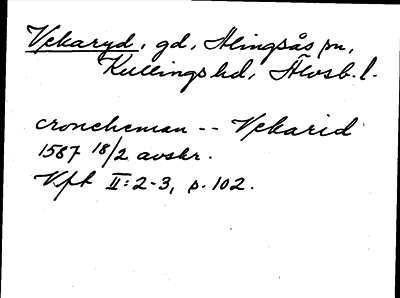 Vekaryd, gd, Alingsås sn,
Kullings hd, Älvsb. l.
croneheman -- Vekarid
1587 18/2 avskr.
Vft II:2-3, p. 102.